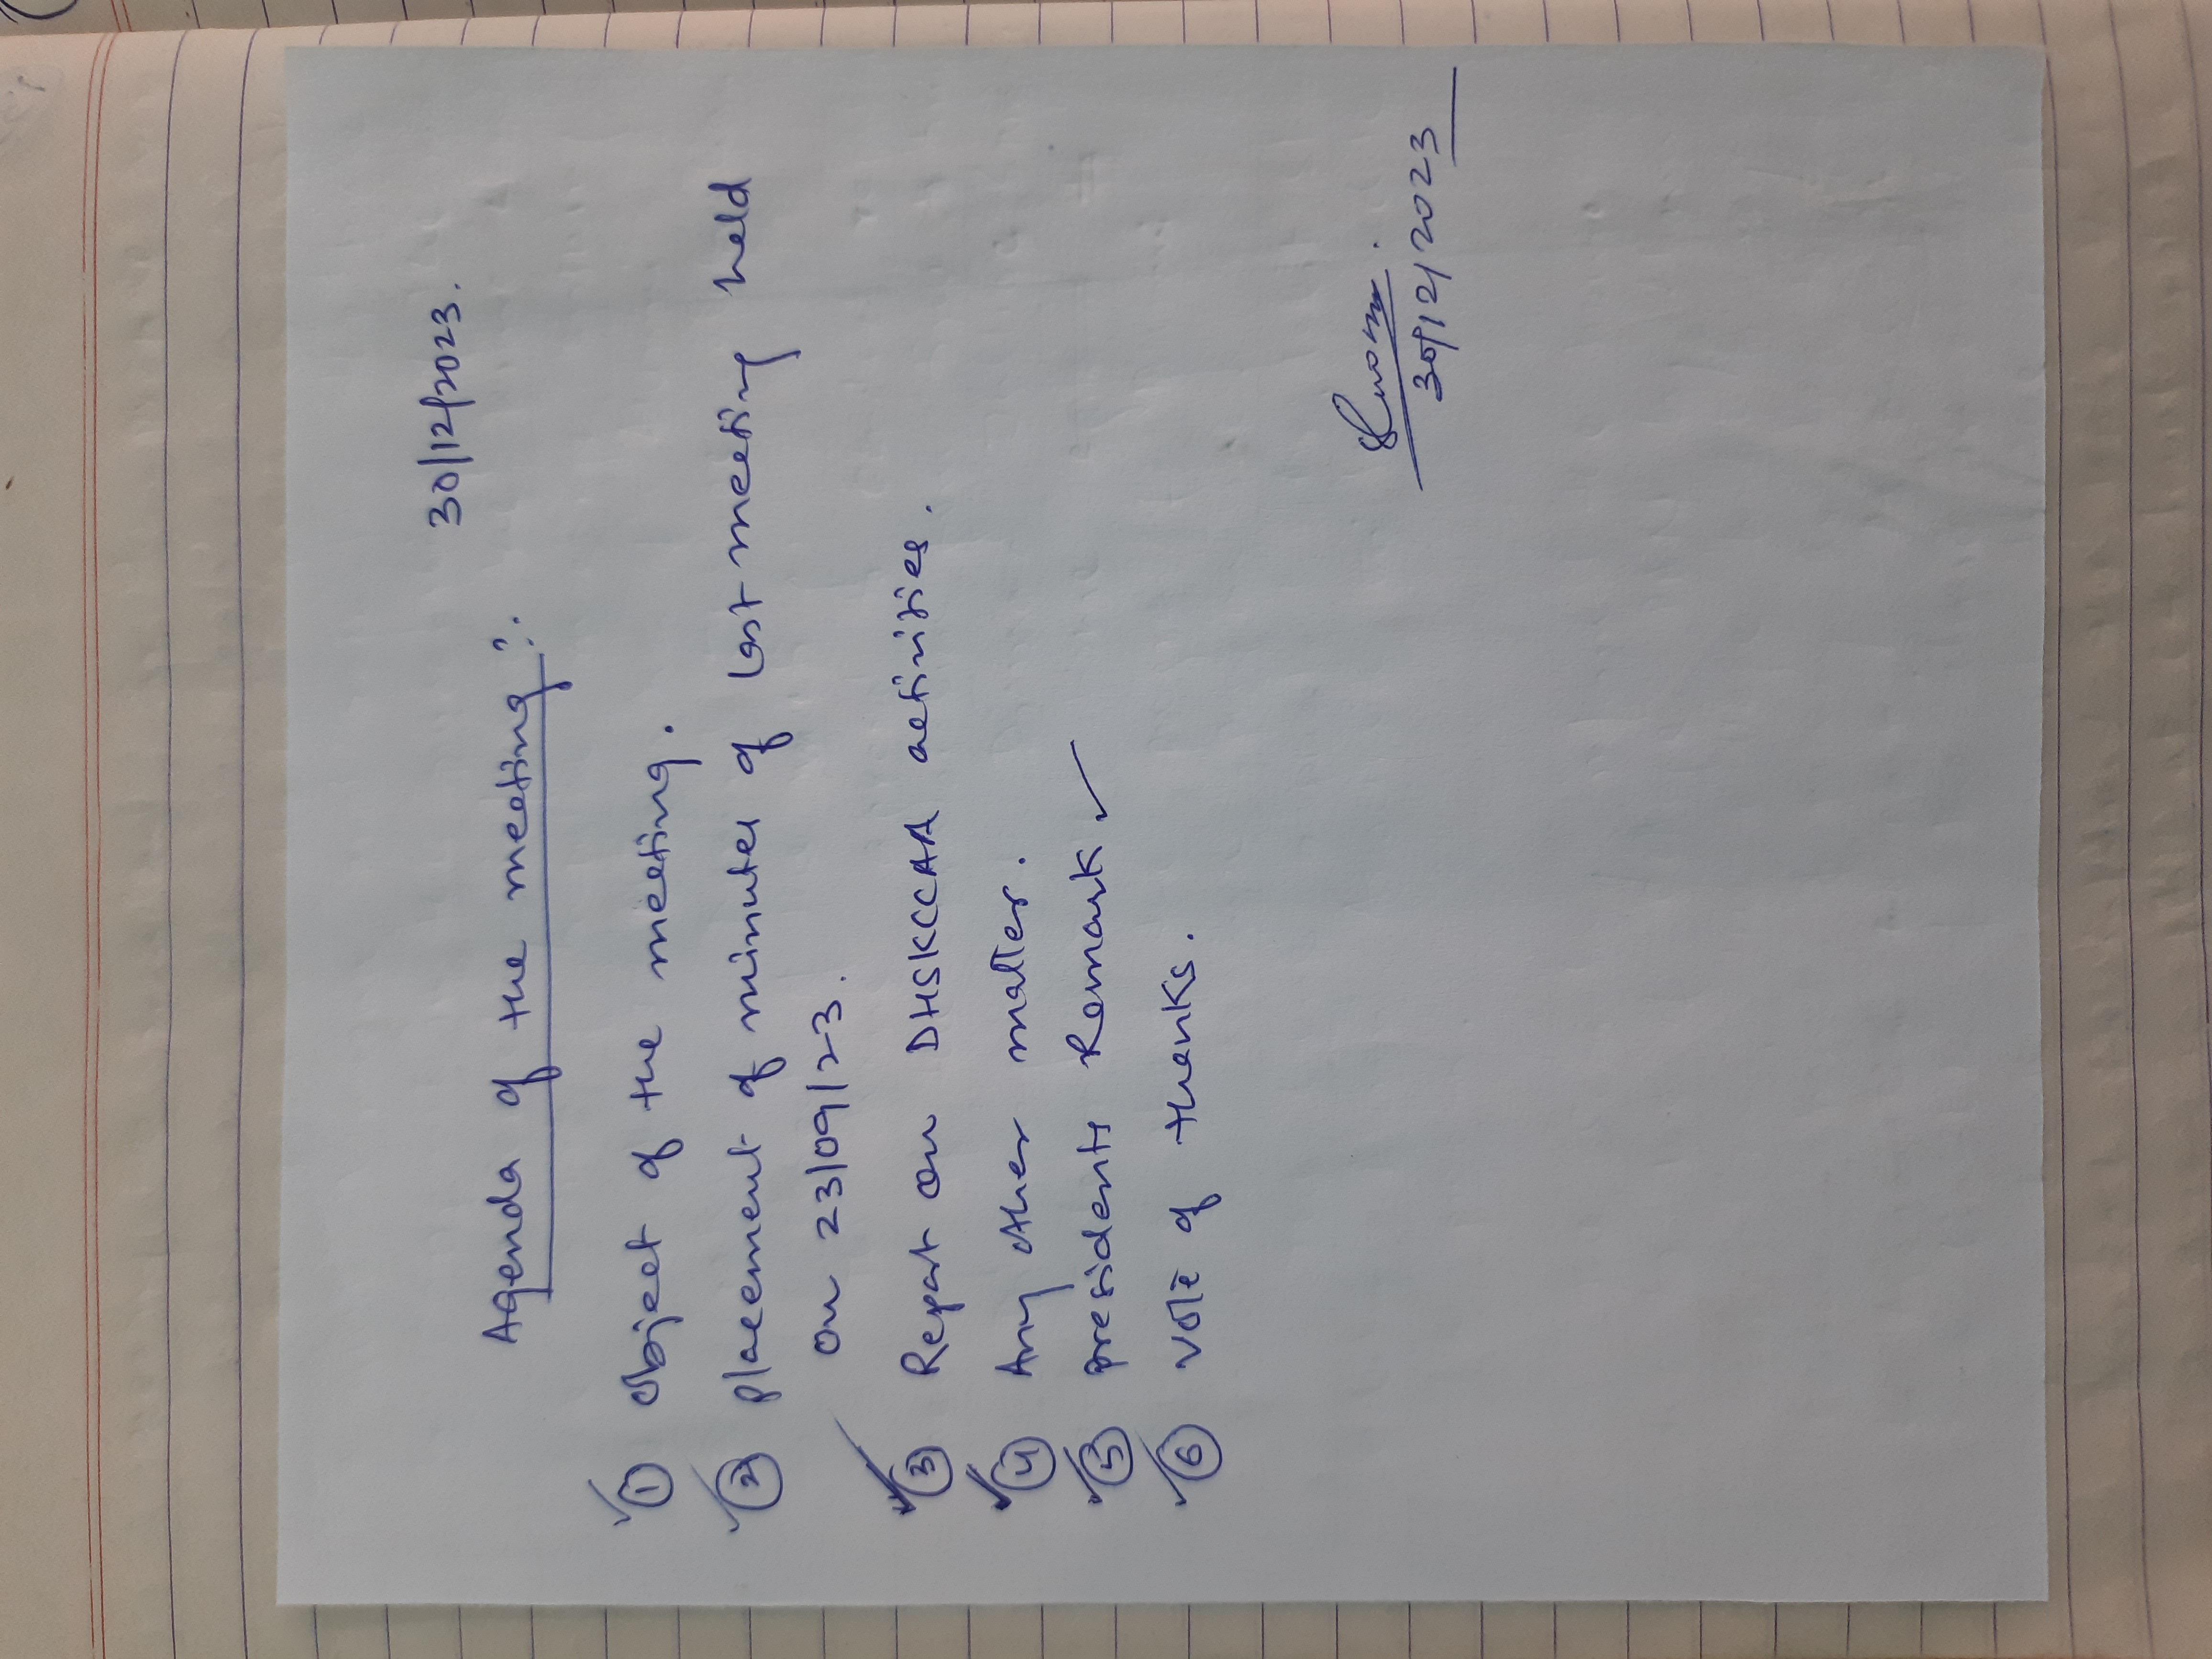 30/12/2023.
Agenda of the meeting :.
① Object of the meeting.
② placement of minutes of last meeting held
on 23/09/23.
③ Report on DHSKCCAA activities.
④ Any other matter.
⑤ presidents Remark ✓
⑥ vote of thanks.
30/12/2023